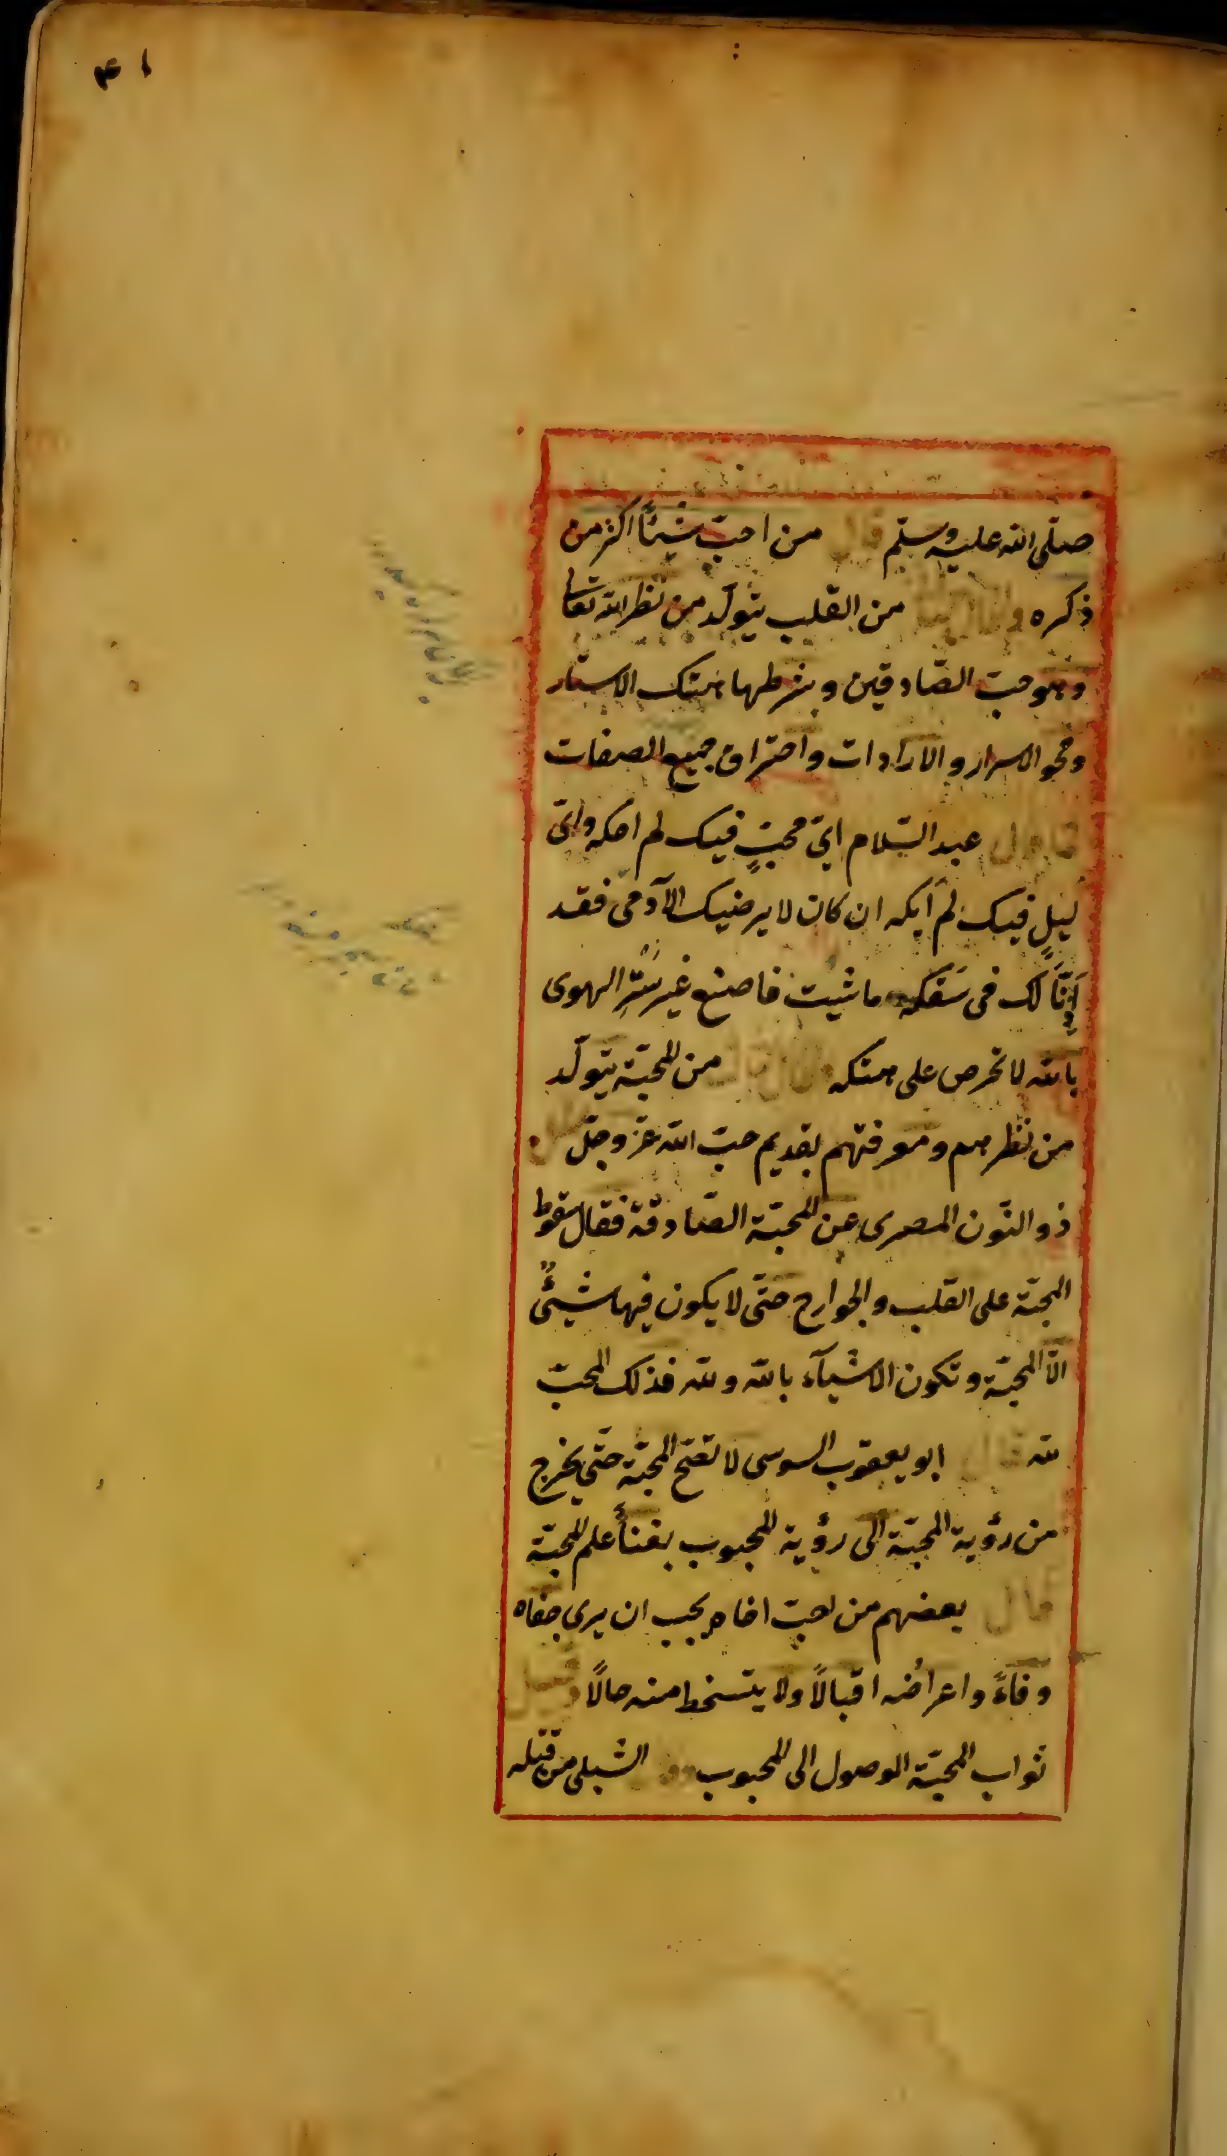 ۴۱
صلّى الله عليه وسلّم قال من احبّ شيئًا اكثر من
ذكره وقال من القلب يتولّد من نظر الله تعالى
وهو حبّ الصّادقين وشرطها هتك الاستار
ومحو الاسرار والارادات واحتراق جميع الصفات
عبد السّلام ايّ محبّ فيك لم احكه وايّ
ليلٍ فيك لم ابكه ان كان لا يرضيك الّا دمي فقد
لك فى سفكه ما شئت فاصنع غير ستر الهوى
بالله لا تحرص على هتكه من المحبّة يتولّد
من نظرهم ومعرفتهم بقديم حبّ الله عزّ وجلّ
ذو النّون المصرى عن المحبّة الصّادقة فقال سقوط
المحبّة على القلب والجوارح حتّى لا يكون فيها شيئٌ
الّا المحبّة وتكون الاشيآء بالله ولله فذلك المحبّ
لله قال ابو يعقوب السوسى لا تصحّ المحبّة حتّى يخرج
من رؤية المحبّة الى رؤية المحبوب بفناء علم المحبّة
قال بعضهم من احبّ اخاه يجب ان يرى جفاه
وفاءً واعراضه اقبالًا ولا يتسخط منه حالًا وقيل
ثواب المحبّة الوصول الى المحبوب الشبلى من قتله